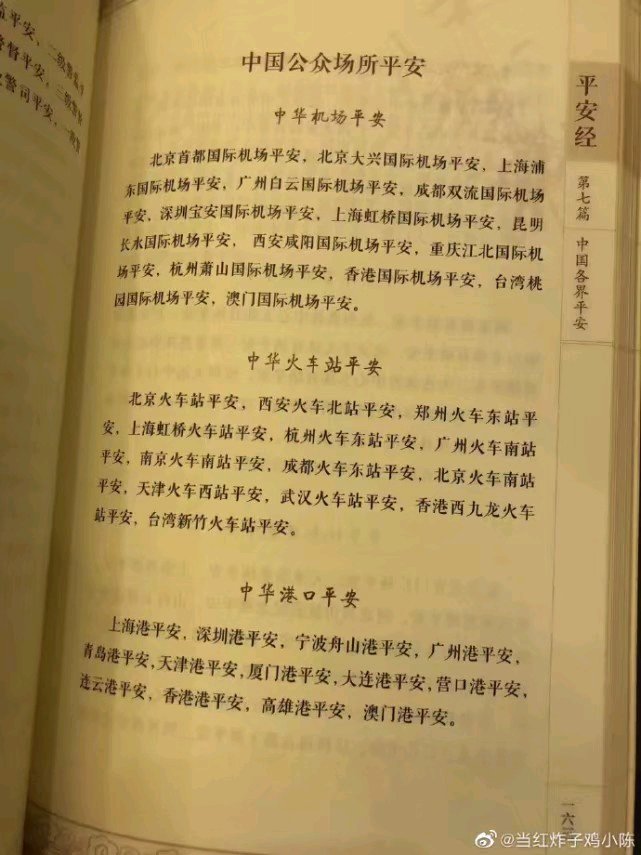 监平安、二级警监平
警督平安、三级警
警司平安、一级警
中国公众场所平安
中华机场平安
北京首都国际机场平安，北京大兴国际机场平安，上海浦
东国际机场平安，广州白云国际机场平安，成都双流国际机场
平安，深圳宝安国际机场平安，上海虹桥国际机场平安，昆明
长水国际机场平安， 西安咸阳国际机场平安，重庆江北国际机
场平安，杭州萧山国际机场平安，香港国际机场平安，台湾桃
园国际机场平安，澳门国际机场平安。
中华火车站平安
北京火车站平安，西安火车北站平安，郑州火车东站平
安，上海虹桥火车站平安，杭州火车东站平安，广州火车南站
平安，南京火车南站平安，成都火车东站平安，北京火车南站
平安，天津火车西站平安，武汉火车站平安，香港西九龙火车
站平安，台湾新竹火车站平安。
中华港口平安
上海港平安，深圳港平安，宁波舟山港平安，广州港平安，
青岛港平安，天津港平安，厦门港平安，大连港平安，营口港平安，
连云港平安，香港港平安，高雄港平安，澳门港平安。
平安经
第七篇
中国各界平安
一六
@当红炸子鸡小陈